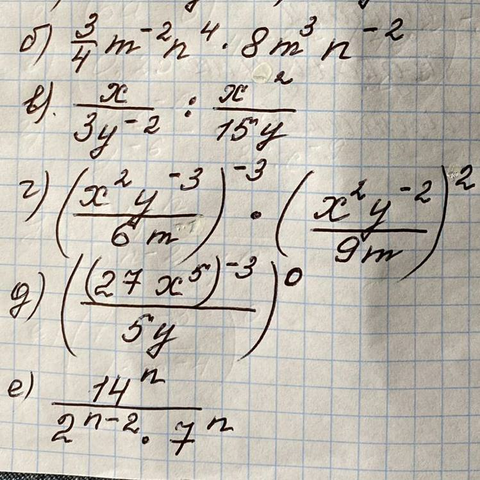 б) 3/4 m⁻² n⁴ · 8m³ n⁻²
в). x/(3y⁻²) : x²/(15y)
г) (x² y⁻³/(6m))⁻³ · (x² y⁻²/(9m))²
д) ((27x⁵)⁻³/(5y))⁰
е) 14ⁿ/(2ⁿ⁻² · 7ⁿ)